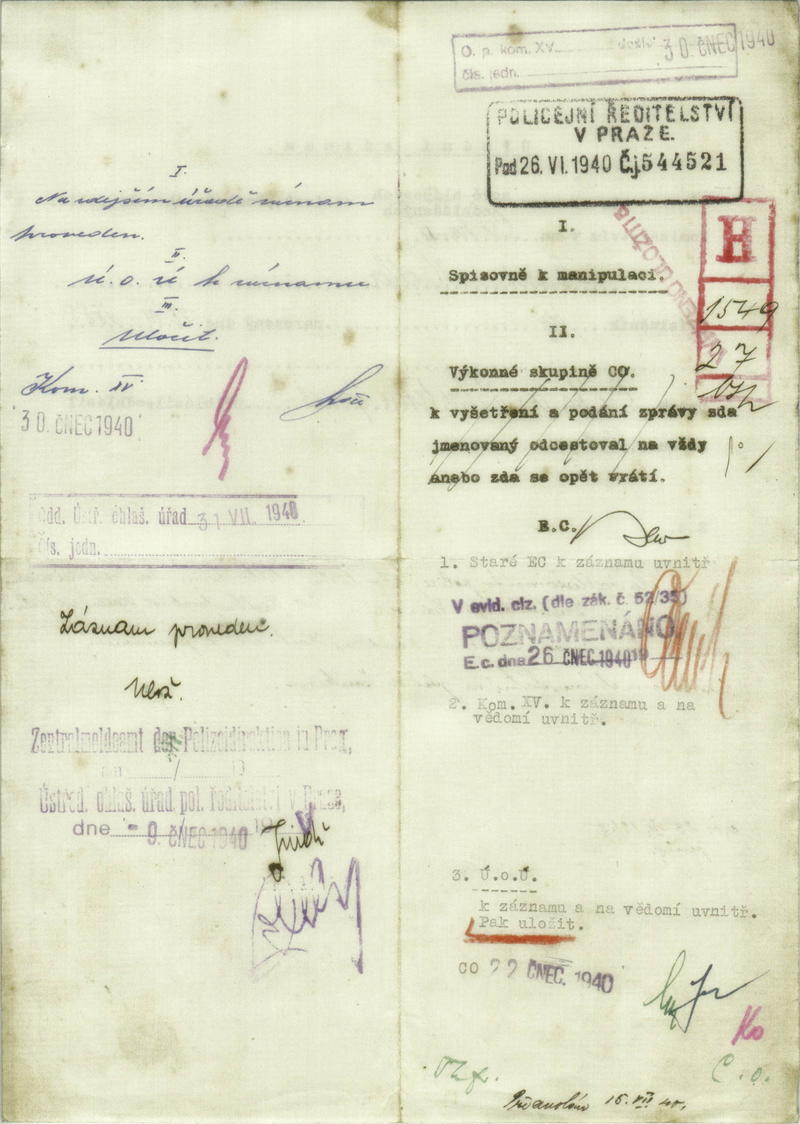 I.
Na zdejším úřadě záznam
proveden.
II.
Ú. o. ú. k záznamu
III.
Uložit.
Kom. XV
30. ČNEC 1940
Odd. Ústř. ohlaš. úřad 31 VII. 1940
Čís. jedn.
Záznam proveden.
Ulož.
Zentralmeldeamt der Polizeidirektion in Prag,
am / 19
Ústřed. ohlaš. úřad pol. ředitelství v Praze,
dne - 9. ČNEC 1940 19
O. p. kom. XV. došlo 30. ČNEC 1940
čís. jedn.
POLICEJNÍ ŘEDITELSTVÍ
V PRAZE.
Pod 26. VI. 1940 Č.j. 544521
I.
H
Spisovně k manipulaci.
1549
II.
27
Výkonné skupině CO.
k vyšetření a podání zprávy zda
jmenovaný odcestoval na vždy
anebo zda se opět vrátí.
E.C.
1. Staré EC k záznamu uvnitř
V evid. ciz. (dle zák. č. 52/35)
POZNAMENÁNO
E.c. dna 26 ČNEC 1940 19
2. Kom. XV. k záznamu a na
vědomí uvnitř.
3. Ú.o.Ú.
k záznamu a na vědomí uvnitř.
Pak uložit.
CO 22 ČNEC. 1940
Ko
C. o.
15. VII 40.